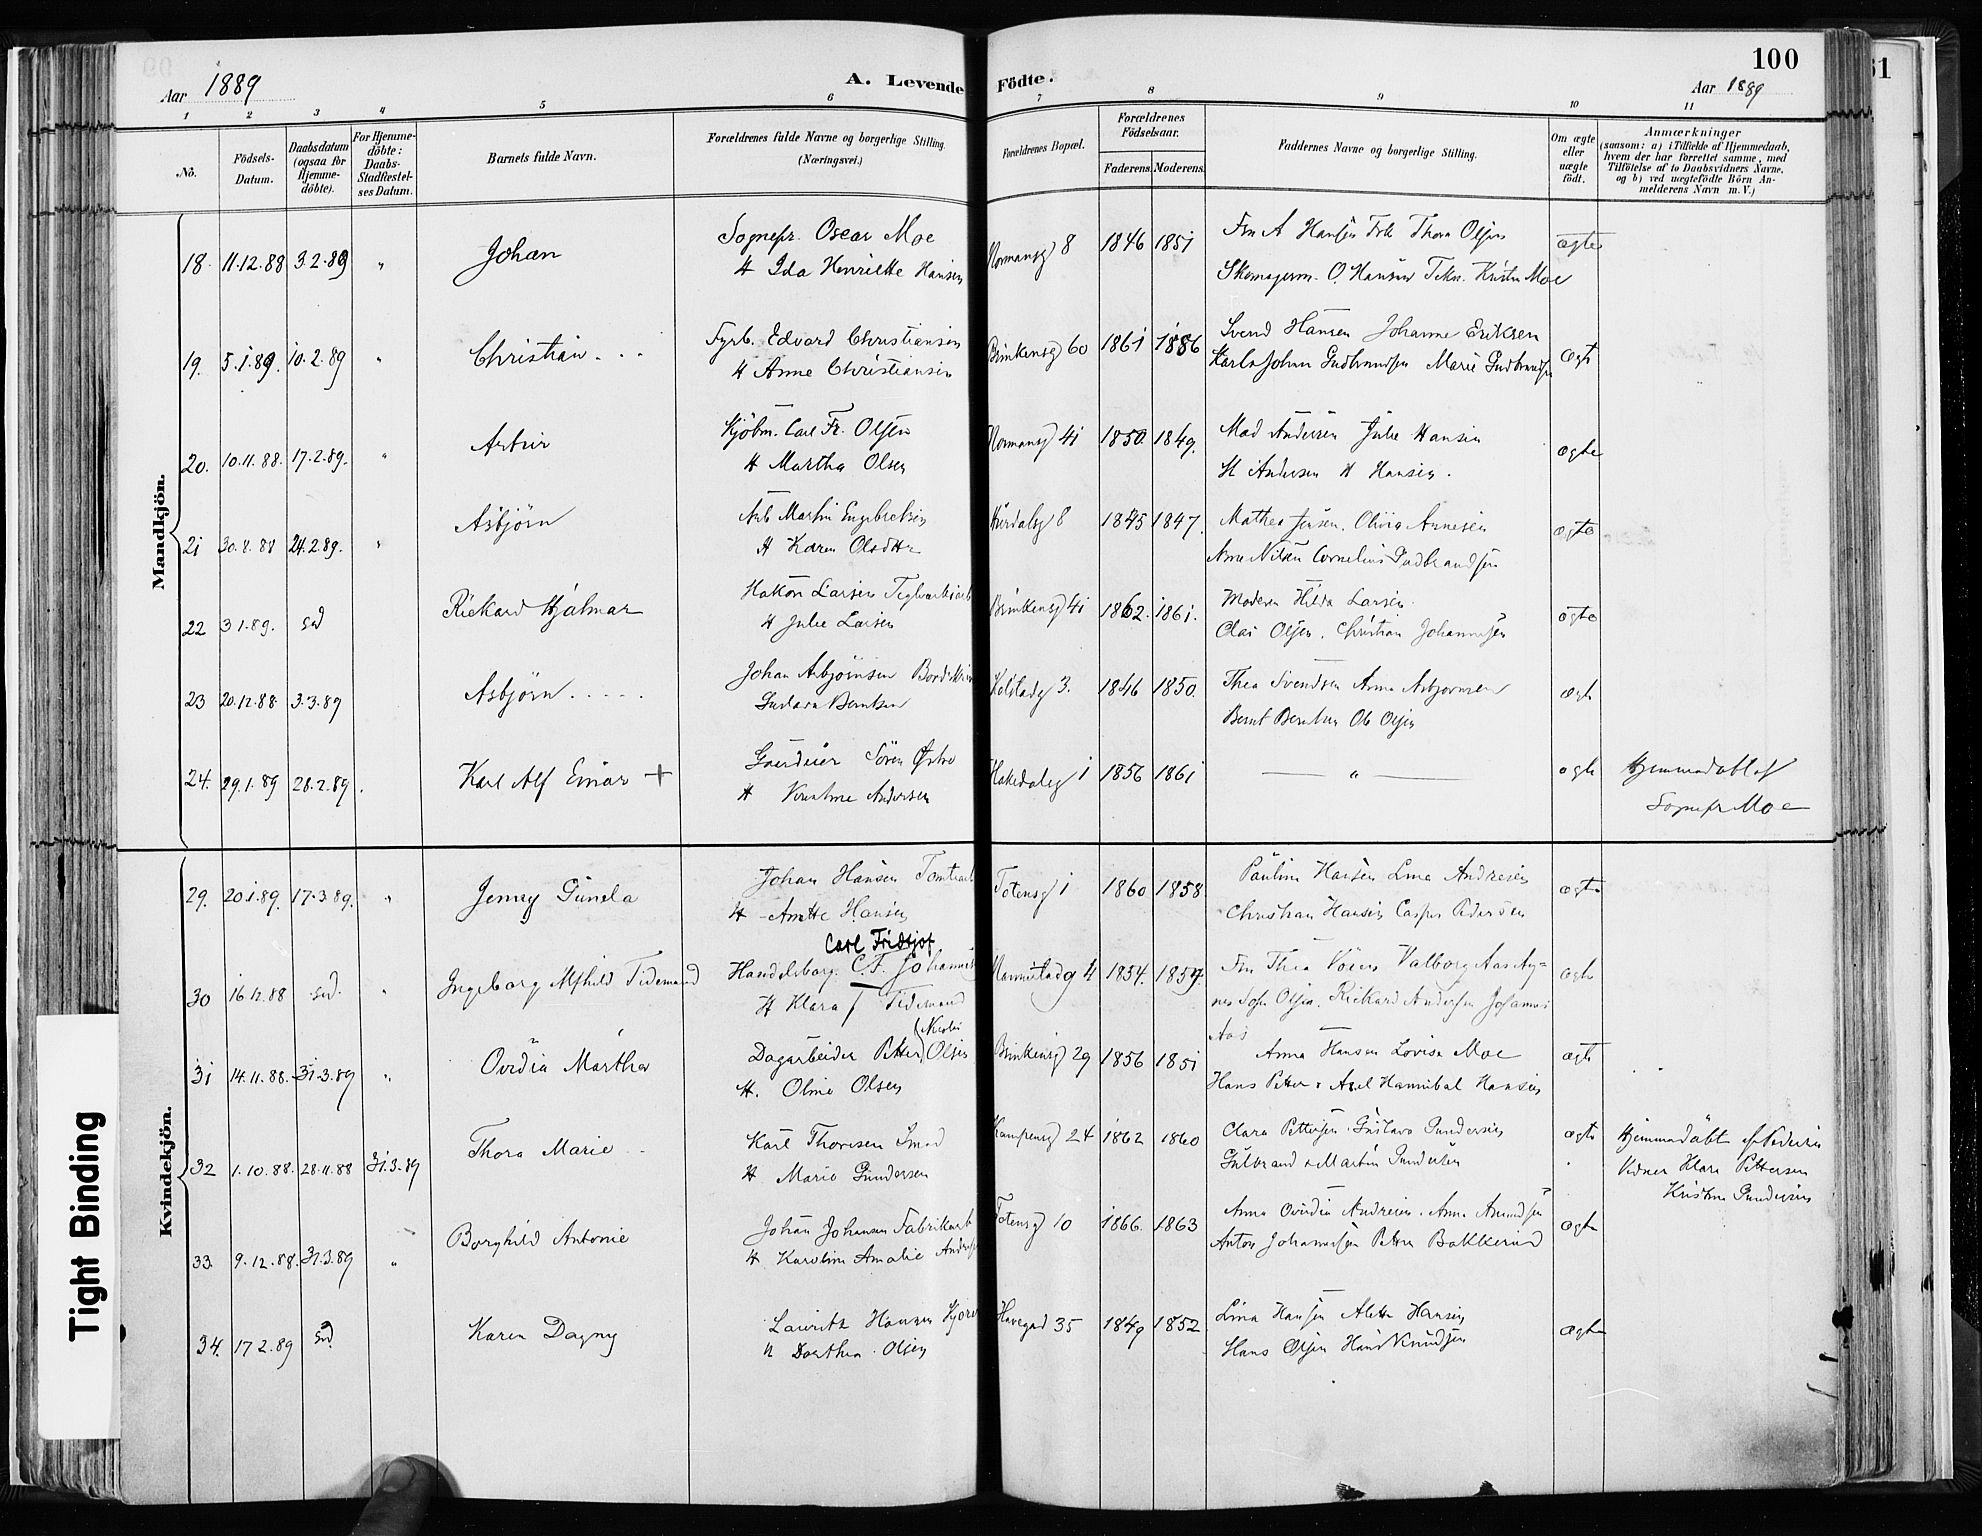 Aar 1889
A. Levende Födte.
100
Aar 1889
61
1 2 3 4 5 6 7 8 9 10 11
No.
Födsels-
Datum.
Daabsdatum
(ogsaa for
Hjemme-
döbte).
For Hjemme-
döbte:
Daabs-
Stadfestel-
ses Datum.
Barnets fulde Navn.
Forældrenes fulde Navne og borgerlige Stilling.
(Næringsvei.)
Forældrenes Bopæl.
Forældrenes
Födselsaar.
Faderens. Moderens.
Faddernes Navne og borgerlige Stilling.
Om ægte
eller
uægte
födt.
Anmærkninger
(saasom: a) i Tilfælde af Hjemmedaab,
hvem der har forrettet samme, med
Tilföielse af to Daabsvidners Navne,
og b) ved uægtefödte Börn An-
melderens Navn m. V.)
Mandkjön.
18. 11.12.88 3.2.89 " Johan
Sognepr. Oscar Moe
H Ida Henriette Hansen
Normansg 8 1846 1851
A Hansen Thora Olsen
Skomagerm. O. Hansen Kristen Moe
ægte
19. 5.1.89. 10.2.89 " Christian
Fyrb. Edvard Christiansen
H Anne Christiansen
Brinkensg 60 1861 1886
Svend Hansen Johanne Eriksen
Karl Johan Gudbrandsen Marie Gudbrandsen
ægte
20. 10.11.88. 17.2.89. " Artur
Kjöbm. Carl Fr. Olsen
H Martha Olsen
Normansg 41 1850 1849.
Mad Andersen Julie Hansen
H Andersen H Hansen.
ægte
21 30.8.88 24.2.89. " Asbjörn
Arb Martin Engebretsen
H Karen Olsdtr
Hurdalsg 8 1845 1847.
Mathea Jensen. Olivia Arnesen
Arne Nilsen Cornelius Gudbrandsen
ægte
22 3 1.89. sd Rickard Hjalmar
Hakon Larsen Teglverksarb
H Julie Larsen
Brinkensg 41 1862. 1861.
Moderen Hilda Larsen.
Olai Olsen. Christian Johannesen
ægte
23 20.12.88. 3.3.89 Asbjörn
Johan Asbjörnsen
Gustava Berntsen
Kolstadg 3. 1846 1850.
Thea Svendsen Anna Asbjornsen
Bernt Berntsen Ole Olsen
ægte
24. 29.1.89 28.2.89 . Karl Alf Einar +
Gaardeier Sören Østbo
H Andersen
Hakedalsg 1 1856 1861
"
ægte
Hjemmedöbt af
Sognepr Moe
Kvindekjön.
29. 20.1.89. 17.3.89. " Jenny Gunela
Johan Hansen Tomtearb
H Anette Hansen
Totensg 1 1860 1858
Pauline Hansen Lina Andresen
Christian Hansen Casper Pedersen
ægte
30 16.12.88 sd. " Ingeborg Alfhild Tidemand
Carl Fridtjof
Handelsborg. C. F. Johannes
H Klara Tidemand
Mannestadg 4 1854. 1859.
Thea Valborg Aas Ag=
nes Sofi Olsen. Rickard Andersen Johannes
Aas
ægte
31 14.11.88. 31.3.89 " Ovidia Martha
Dagarbeider Petter Olsen
H. Oline Olsen
Brinkensg 29 1856 1851
Anna Hansen Lovise Moe
Hans Petter & Axel Hannibal Hansen
ægte
32 1.10.88. 28.11.88 31.3.89 Thora Marie
Karl Thoresen Smed
H Marie Gundersen
Kampensg 24 1862 1860
Clara Pettersen. Gustava Gundersen
Gulbrand & Martin Gundersen
ægte
Hjemmedöbt af
Vidner Klara Pettersen
Kristine Gundersen
33. 9.12.88. 31.3.89 " Borghild Antonie
Johan Johansen Fabrikarb
H Karoline Amalie
Totensg 10 1866. 1863
Anna Ovidia Andresen. Anne Amundsen
Anton Johannesen Petter Bakkerud
ægte
34. 17 2.89 sd. Karen Dagny
Lauritz Hansen
H Dorthea Olsen
Havegad 35 1849 1852
Lina Hansen Alette Hansen
Hans Olsen Hans Knudsen
ægte
Tight Binding